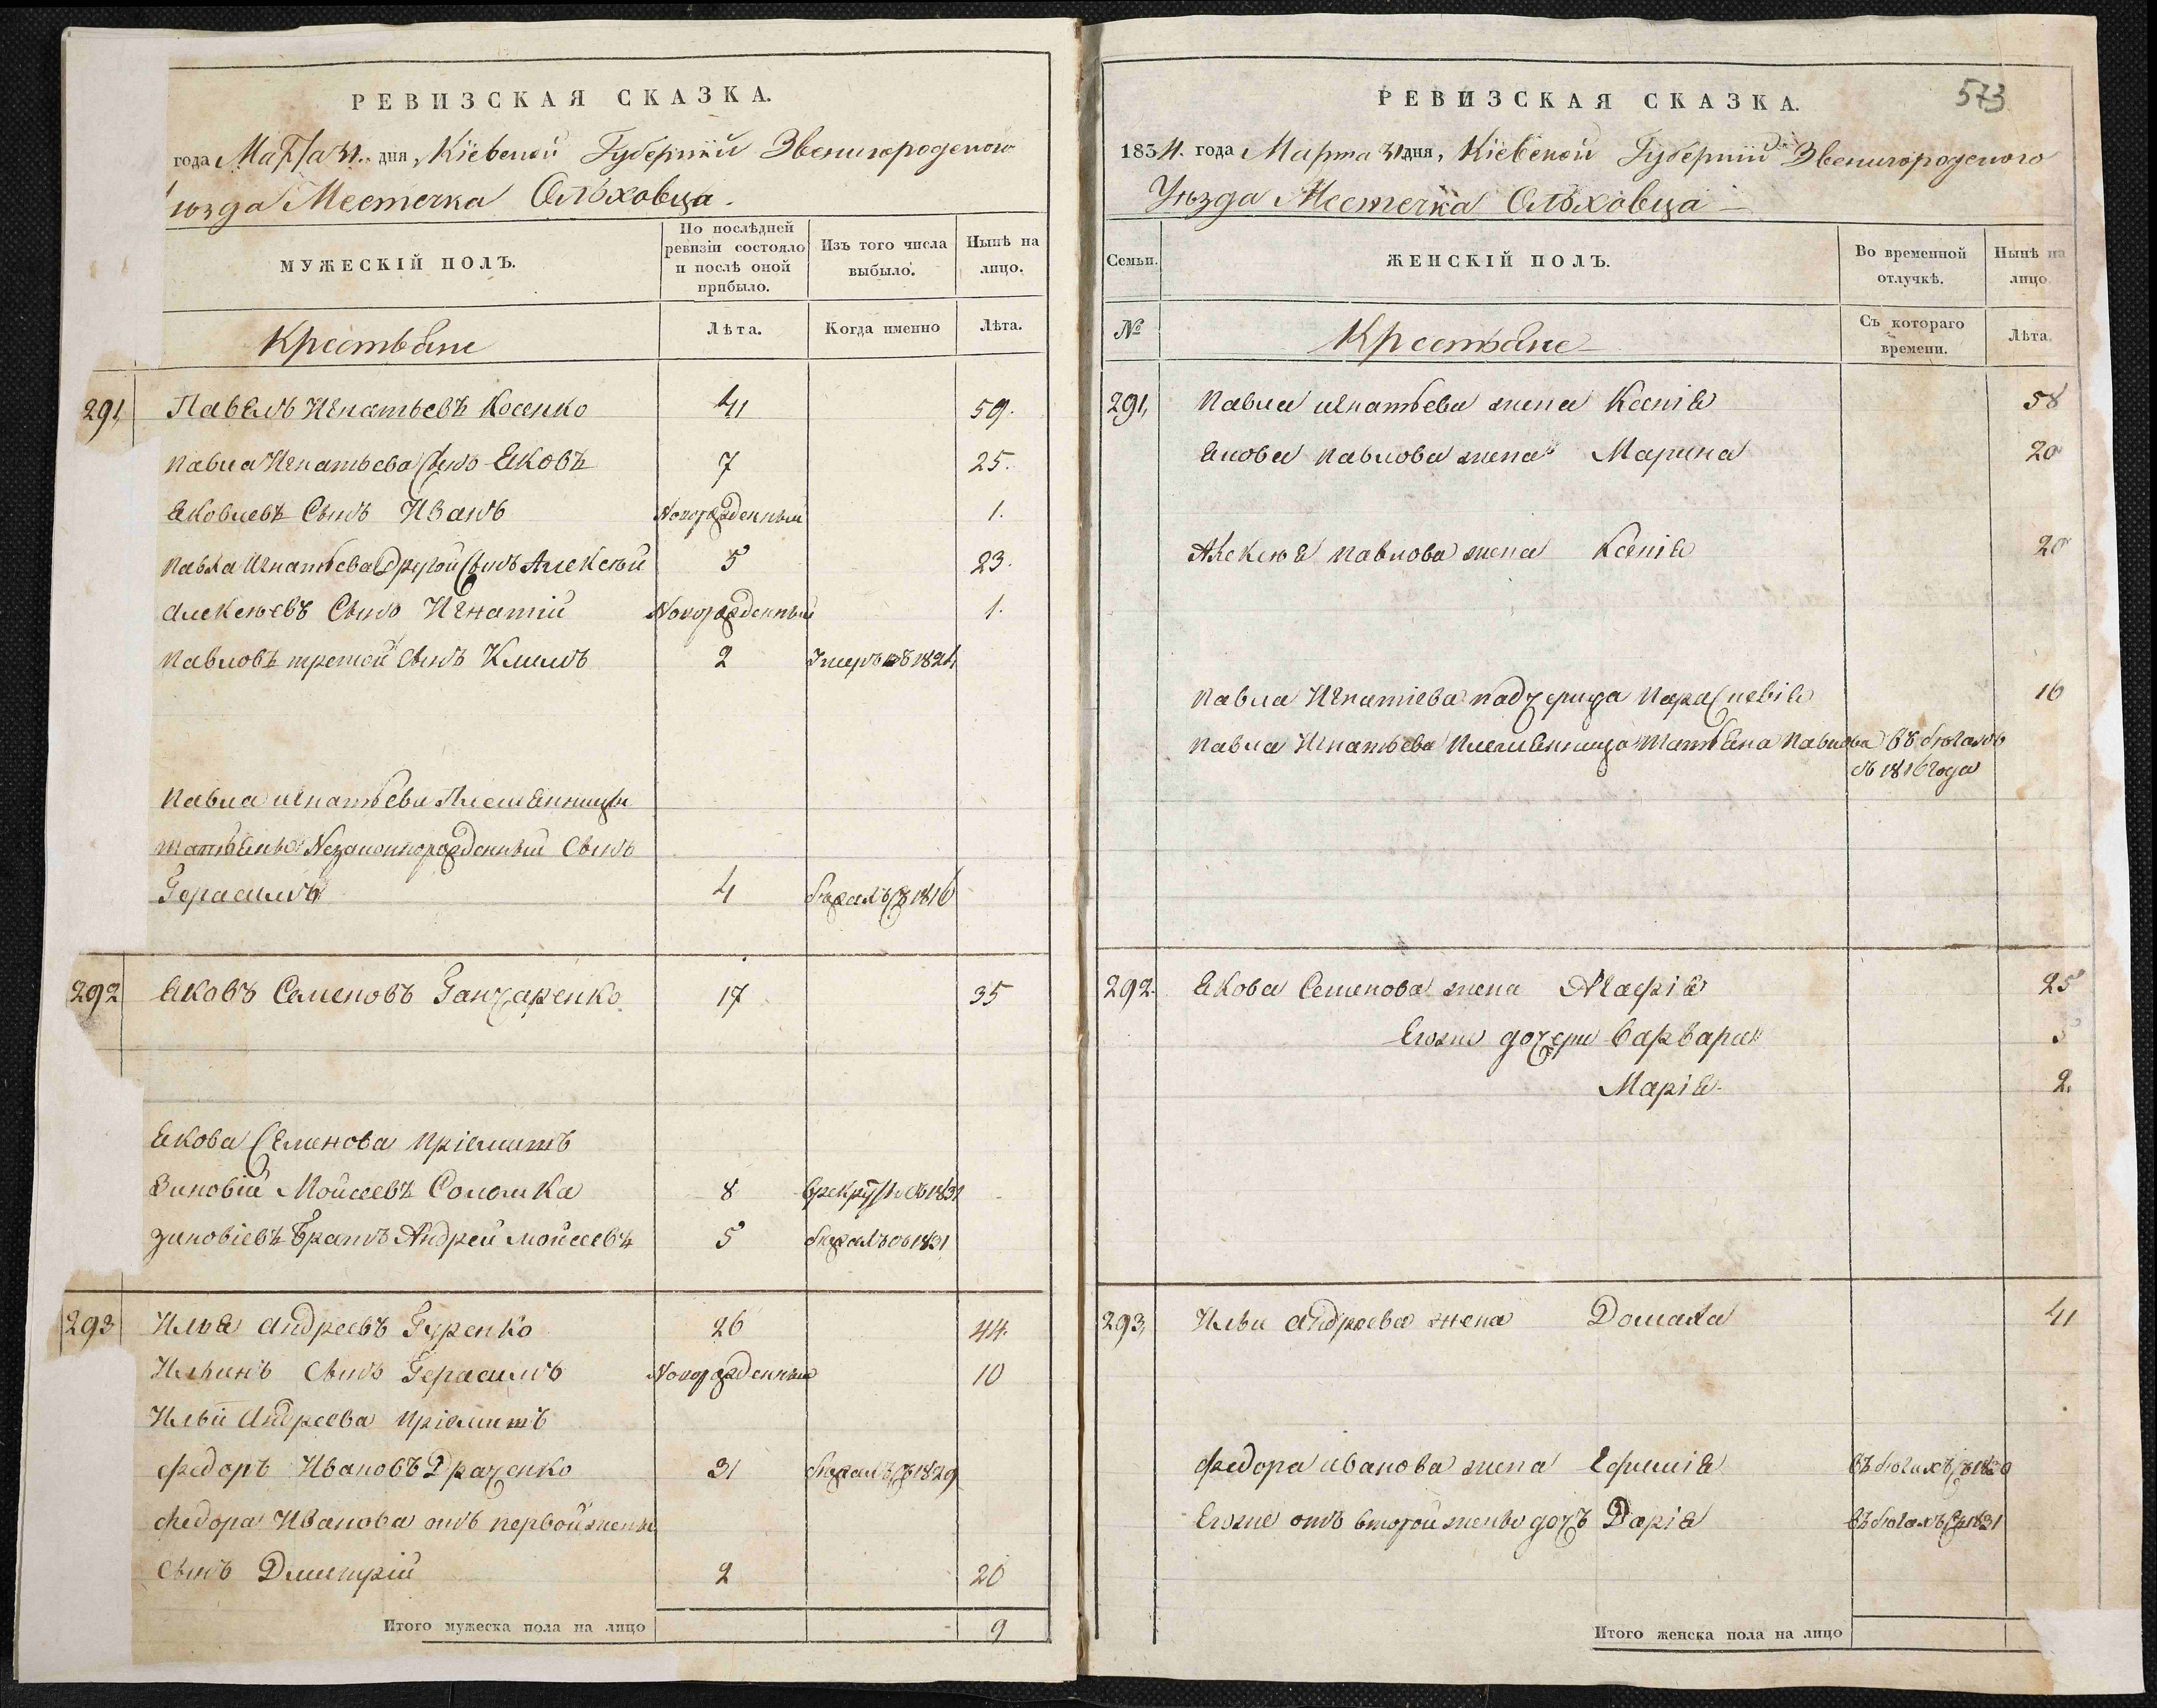 РЕВИЗСКАЯ СКАЗКА.
года Марта 31 дня, Кіевской Губерніи Звенигородского
уѣзда Местечка Ольховца.
МУЖЕСКІЙ ПОЛЪ.
По послѣдней
ревизіи состояло
и послѣ оной
прибыло.
Изъ того числа
выбыло.
Нынѣ на
лицо.
Крестьяне
Лѣта.
Когда именно
Лѣта.
291, Павелъ Игнатьевъ Косенко 41 59.
Павла Игнатьева Сынъ Яковъ 7 25.
Яковлевъ Сынъ Иванъ Новорожденный 1.
Павла Игнатьева Другой Сынъ Алексѣй 5 23.
Алексѣевъ Сынъ Игнатій Новорожденный 1.
Павловъ третой Сынъ Климъ 2 Умеръ въ 1824
Павла Игнатьева Племянницы
Татьяны Незаконнорожденный Сынъ
Герасимъ 4 бѣжалъ съ 1816
292 Яковъ Семеновъ Ганчаренко 17 35
Якова Семенова пріемишъ
Зиновій Мойсеевъ Соломка 8 1831
Зиновіевъ Братъ Андрей Мойсеевъ 5 бѣжалъ 1831
293 Илья Андреевъ Гуренко 26 44.
Ильинъ Сынъ Герасимъ Новорожденный 10
Ильи Андреева пріемишъ
Федоръ Ивановъ Драченко 31 бѣжалъ съ 1829
Федора Иванова отъ первой жены
Сынъ Дмитрій 2 20
Итого мужеска пола на лицо 9
573
РЕВИЗСКАЯ СКАЗКА.
1834. года Марта 31 дня, Кіевской Губерніи Звенигородского
Уѣзда Местечка Ольховца
Семьи.
ЖЕНСКІЙ ПОЛЪ.
Во временной
отлучкѣ.
Нынѣ на
лицо.
№
Крестьяне
Съ котораго
времени.
Лѣта.
291, Павла Игнатьева жена Ксенія 58
Якова Павлова жена Марина 20
Алексѣя Павлова жена Ксенія 20
Павла Игнатіева падчерица Параскевія 16
Павла Игнатьева Племянница Татьяна Павлова въ бѣгахъ
съ 1816 года
292. Якова Семенова жена Агафія 25
Егоже дочери Варвара 5
Марія 2.
293, Ильи Андреева жена Домаха 41
Федора Иванова жена Ефимія въ бѣгахъ съ
Егоже отъ второй жены дочь Дарія въ бѣгахъ съ 1831
Итого женска пола на лицо